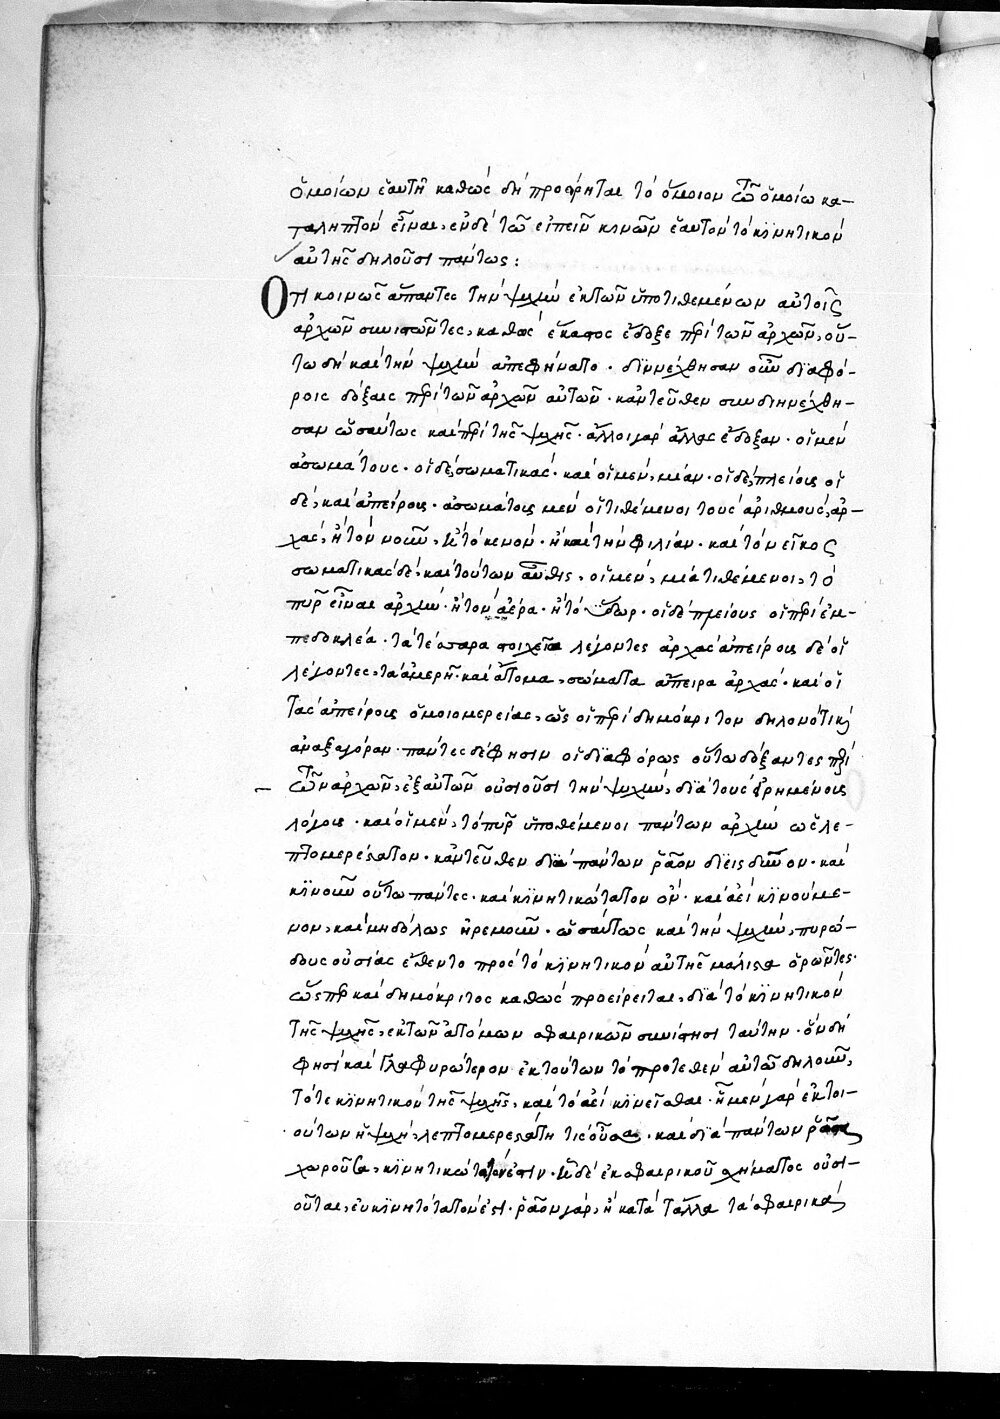 ὁμοίων ἑαυτῆ καθὼς δὴ προείρηται τὸ ὅμοιον τῶ ὁμοίω κα-
ταληπτὸν εἶναι, ἐν δὲ τῶ εἰπεῖν κινῶν ἑαυτὸν τὸ κϊνητικὸν
αὐτῆς δηλοῦσι πάντως:
Ὅτι κοινῶς ἅπαντες τὴν ψυχὴν ἐκ τῶν ὑποτιθεμένων αὐτοῖς
ἀρχῶν συνιστῶντες, καθὼς ἕκαστος ἔδοξε περὶ τῶν ἀρχῶν, οὕ-
τω δὴ καὶ τὴν ψυχὴν ἀπεφήνατο. διηνέχθησαν οὖν δϊαφό-
ροις δόξαις περὶ τῶν ἀρχῶν αὐτῶν. κἀντεῦθεν συνδιηνέχθη-
σαν ὡσαύτως καὶ περὶ τῆς ψυχῆς. ἄλλοι γὰρ ἄλλας ἔδοξαν. οἱ μὲν
ἀσωμάτους. οἱ δὲ, σωματικὰς. καὶ οἱ μὲν, μίαν. οἱ δὲ, πλείους οἱ
δὲ, καὶ ἀπείρους. ἀσωμάτους μὲν οἱ τιθέμενοι τοὺς ἀριθμοὺς, ἀρ-
χὰς, ἢ τὸν νοῦν, ἢ τὸ κενὸν. ἢ καὶ τὴν φιλίαν. καὶ τὸ νεῖκος
σωματικὰς δὲ, καὶ τούτων αὖθις, οἱ μὲν, μία τιθέμενοι, τὸ
πῦρ εἶναι ἀρχὴν. ἢ τὸν ἀέρα. ἢ τὸ ὕδωρ. οἱ δὲ πλείους οἱ περὶ ἐμ-
πεδοκλέα. τὰ τέσσαρα στοιχεῖα λέγοντες ἀρχὰς ἀπείρους δὲ οἱ
λέγοντες, τὰ ἀμερῆ. καὶ ἄτομα, σώματα ἄπειρα ἀρχὰς. καὶ οἱ
τὰς ἀπείρους ὁμοιομερείας, ὡς οἱ περὶ δημόκριτον δηλονότι κ(αὶ)
ἀναξαγόραν. πάντες δέ φησιν οἱ δϊαφόρως οὕτω δόξαντες περὶ
τῶν ἀρχῶν, ἐξ αὐτῶν οὐσιοῦσι τὴν ψυχὴν, δϊὰ τοὺς εἰρημένους
λόγους. καὶ οἱ μὲν, τὸ πῦρ ὑποθέμενοι πάντων ἀρχὴν ὡς λε-
πτομερέστατον. κἀντεῦθεν δϊὰ πάντων ῥᾶον δϊεισδῦνον. καὶ
κϊνοῦν οὕτω πάντες. καὶ κϊνητικώτατον ὂν. καὶ ἀεὶ κϊνούμε-
νον, καὶ μηδόλως ἠρεμοῦν. ὡσαύτως καὶ τὴν ψυχὴν, πυρώ-
δους οὐσίας ἔθεντο πρὸς τὸ κϊνητικὸν αὐτῆς μάλιστα ὁρῶντες.
ὥσπερ καὶ δημόκριτος καθὼς προείρειται, δϊὰ τὸ κϊνητικὸν
τῆς ψυχῆς, ἐκ τῶν ἀτόμων σφαιρικῶν συνίστησι ταύτην. ὃν δὴ
φησὶ καὶ γλαφυρώτερον ἐκ τούτων τὸ προτεθὲν αὐτῶ δηλοῦν,
τότε κϊνητικὸν τῆς ψυχῆς, καὶ τὸ ἀεὶ κϊνεῖσθαι. ἧ μὲν γὰρ ἐκ τοι-
ούτων ἡ ψυχὴ, λεπτομερεστάτη τις οὖσα. καὶ δϊὰ πάντων ῥᾶστα
χωροῦσα, κϊνητικώτατόν ἐστιν. ἧ δὲ ἐκ σφαιρικοῦ σχήματος οὐσι-
οῦται, εὐκϊνητότατον ἐστ. ῥᾶον γὰρ, ἢ κατὰ τἄλλα τὰ σφαιρικὰ